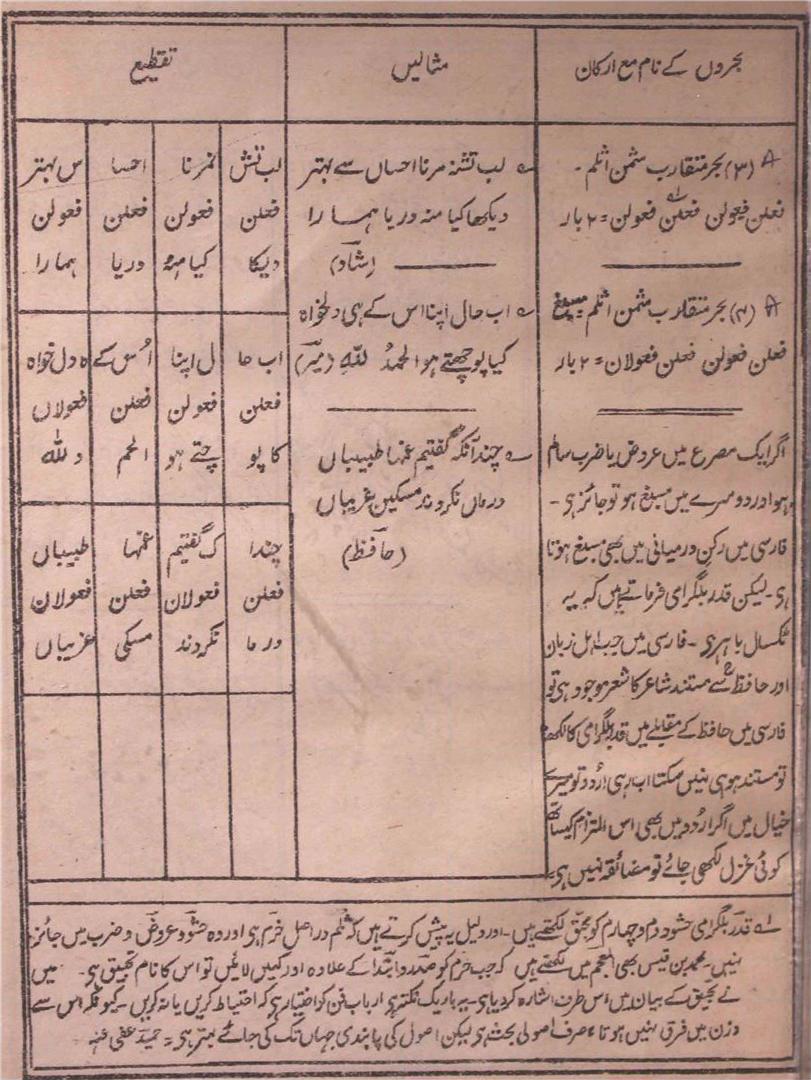 بحروں کے نام مع ارکان
(۳) بحر متقارب مثمن اثلم۔
فعلن فعولن فعلن فعولن = ۲ بار
(۴) بحر متقارب مثمن اثلم مسبغ
فعلن فعولن فعلن فعولان = ۲ بار
اگر ایک مصرع میں عروض یا ضرب سالم
ہو اور دوسرے میں مسبغ ہو تو جائز ہی۔
فارسی میں رکن درمیانی میں بھی مسبغ ہوتا
ہی۔ لیکن قدر بلگرامی فرماتے ہیں کہ یہ
ٹکسال باہر ہی۔ فارسی میں جب اہل زبان
اور حافظ سے مستند شاعر کا شعر موجود ہی تو
فارسی میں حافظ کے مقابلے میں قدر بلگرامی کا لکھا
تو مستند ہو ہی نہیں سکتا اب رہی اردو تو میرے
خیال میں اگر اردو میں بھی اس التزام کیساتھ
کوئی غزل لکھی جائے تو مضائقہ نہیں ہی۔
مثالیں
لب تشنہ مرنا احساں سے بہتر
دیکھا کیا منہ دریا ہمارا
(شاد)
اب حال اپنا اس کے ہی دلخواہ
کیا پوچھتے ہو الحمدُ للّٰہِ (میر)
چندآنکہ گفتیم غمہا طبیباں
درماں نکردند مسکین غریباں
(حافظ)
تقطیع
لب تش نمرنا احسا س بہتر
فعلن فعولن فعلن فعولن
دیکا کیا منہ دریا ہمارا
اب حا ل اپنا اُس کے ہ دل خواہ
فعلن فعولن فعلن فعولاں
کا پو چتے ہو الحم د للّٰہ
چندا ک گفتیم غمہا طبیباں
فعلن فعولان فعلن فعولان
درما نکردند مسکی غریباں
۱؎ قدر بلگرامی حشو دوم و چہارم کو محبق لکھتے ہیں۔ اور دلیل یہ پیش کرتے ہیں کہ ثلم در اصل خرم ہی اور وہ حشو و عروض و ضرب میں جائز
نہیں۔ محمد بن قیس بھی المعجم میں لکھتے ہیں کہ جب خرم کو صدر و ابتدا کے علاوہ اور کہیں لائیں تو اس کا نام تخبیق ہی۔ میں
نے تخبیق کے بیان میں اس طرف اشارہ کر دیا ہی۔ یہ باریک نکتہ ہی ارباب فن کو اختیار ہی کہ احتیاط کریں یا نہ کریں۔ کیونکہ اس سے
وزن میں فرق نہیں ہوتا، صرف اصولی بحث ہی لیکن اصول کی پابندی جہاں تک کی جائے بہتر ہی۔ حمید عفی عنہ